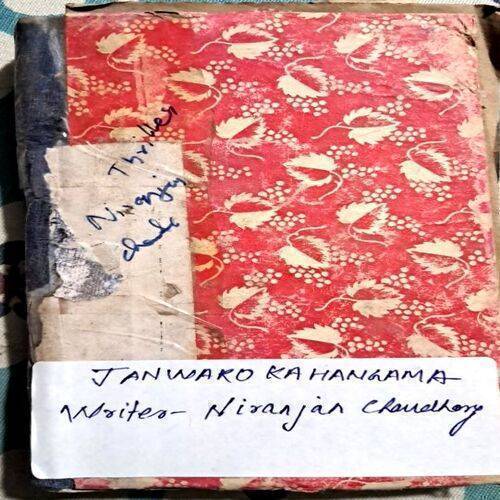 Thriller
Niranjan
JANWARO KA HANGAMA
Writer- Niranjan Chaudhary